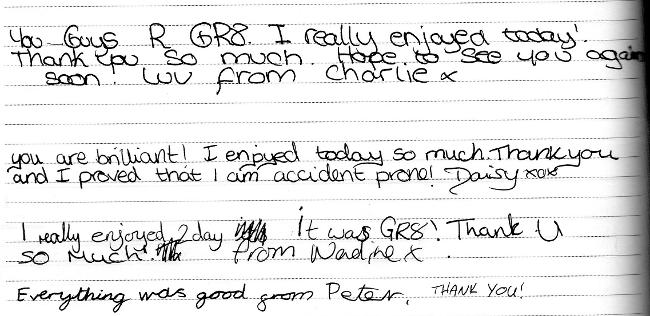 You Guys R GR8. I really enjoyed today!
Thank you so much. Hope to see you again
soon! luv from Charlie x
you are brilliant! I enjoyed today so much. Thank you
and I proved that I am accident prone! Daisy xoxo
I really enjoyed 2day it was GR8! Thank U
so much! from Nadine x .
Everything was good from Peter. THANK YOU!